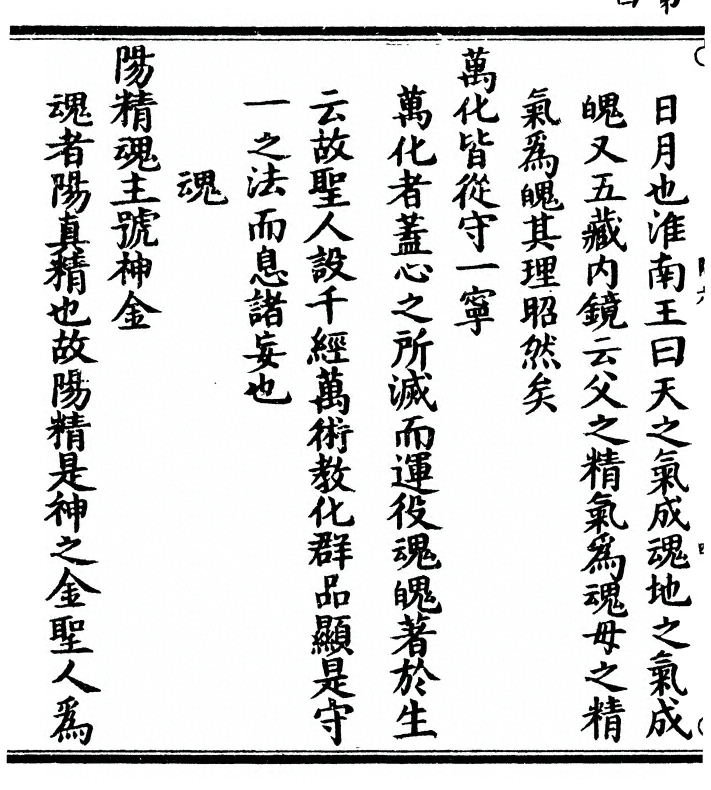 日月也淮南王曰天之氣成魂地之氣成
魄又五藏内鏡云父之精氣爲魂母之精
氣爲魄其理昭然矣
萬化皆從守一寧
萬化者蓋心之所滅而運役魂魄著於生
云故聖人設千經萬術教化群品顯是守
一之法而息諸妄也
魂
陽精魂主號神金
魂者陽真精也故陽精是神之金聖人爲